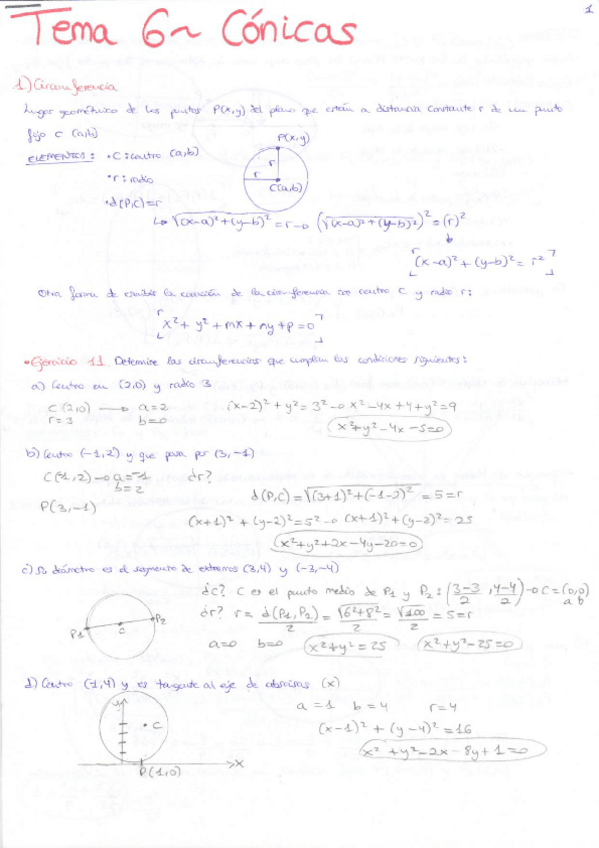 1
Tema 6~ Cónicas
1) Circunferencia
Lugar geométrico de los puntos P(x,y) del plano que están a distancia constante r de un punto
fijo C (a,b)
ELEMENTOS: • C: centro (a,b)
• r: radio
• d(P,C)=r
P(x,y)
r
r
C(a,b)
↳ √(x-a)²+(y-b)² = r → (√(x-a)²+(y-b)²)² = (r)²
(x-a)²+(y-b)² = r²
Otra forma de escribir la ecuación de la circunferencia con centro C y radio r:
x²+y²+mx+ny+p=0
• Ejercicio 11. Determine las circunferencias que cumplan las condiciones siguientes:
a) Centro en (2,0) y radio 3
C(2,0) → a=2 (x-2)²+y²=3² → x²-4x+4+y²=9
r=3 b=0
x²+y²-4x-5=0
b) Centro (-1,2) y que pasa por (3,-1)
C(-1,2) → a=-1 ¿r?
b=2
d(P,C)=√(3+1)²+(-1-2)² = 5=r
P(3,-1)
(x+1)²+(y-2)²=5² → (x+1)²+(y-2)²=25
x²+y²+2x-4y-20=0
c) Su diámetro es el segmento de extremos (3,4) y (-3,-4)
¿C? C es el punto medio de P₁ y P₂: (3-3/2, 4-4/2) → C=(0,0)
a b
¿r? r = d(P₁,P₂)/2 = √6²+8²/2 = √100/2 = 5=r
P₁
C
P₂
a=0 b=0 x²+y²=25 x²+y²-25=0
d) Centro (1,4) y es tangente al eje de abscisas (x)
a=1 b=4 r=4
y
• C
(x-1)²+(y-4)²=16
x²+y²-2x-8y+1=0
P(1,0)
x